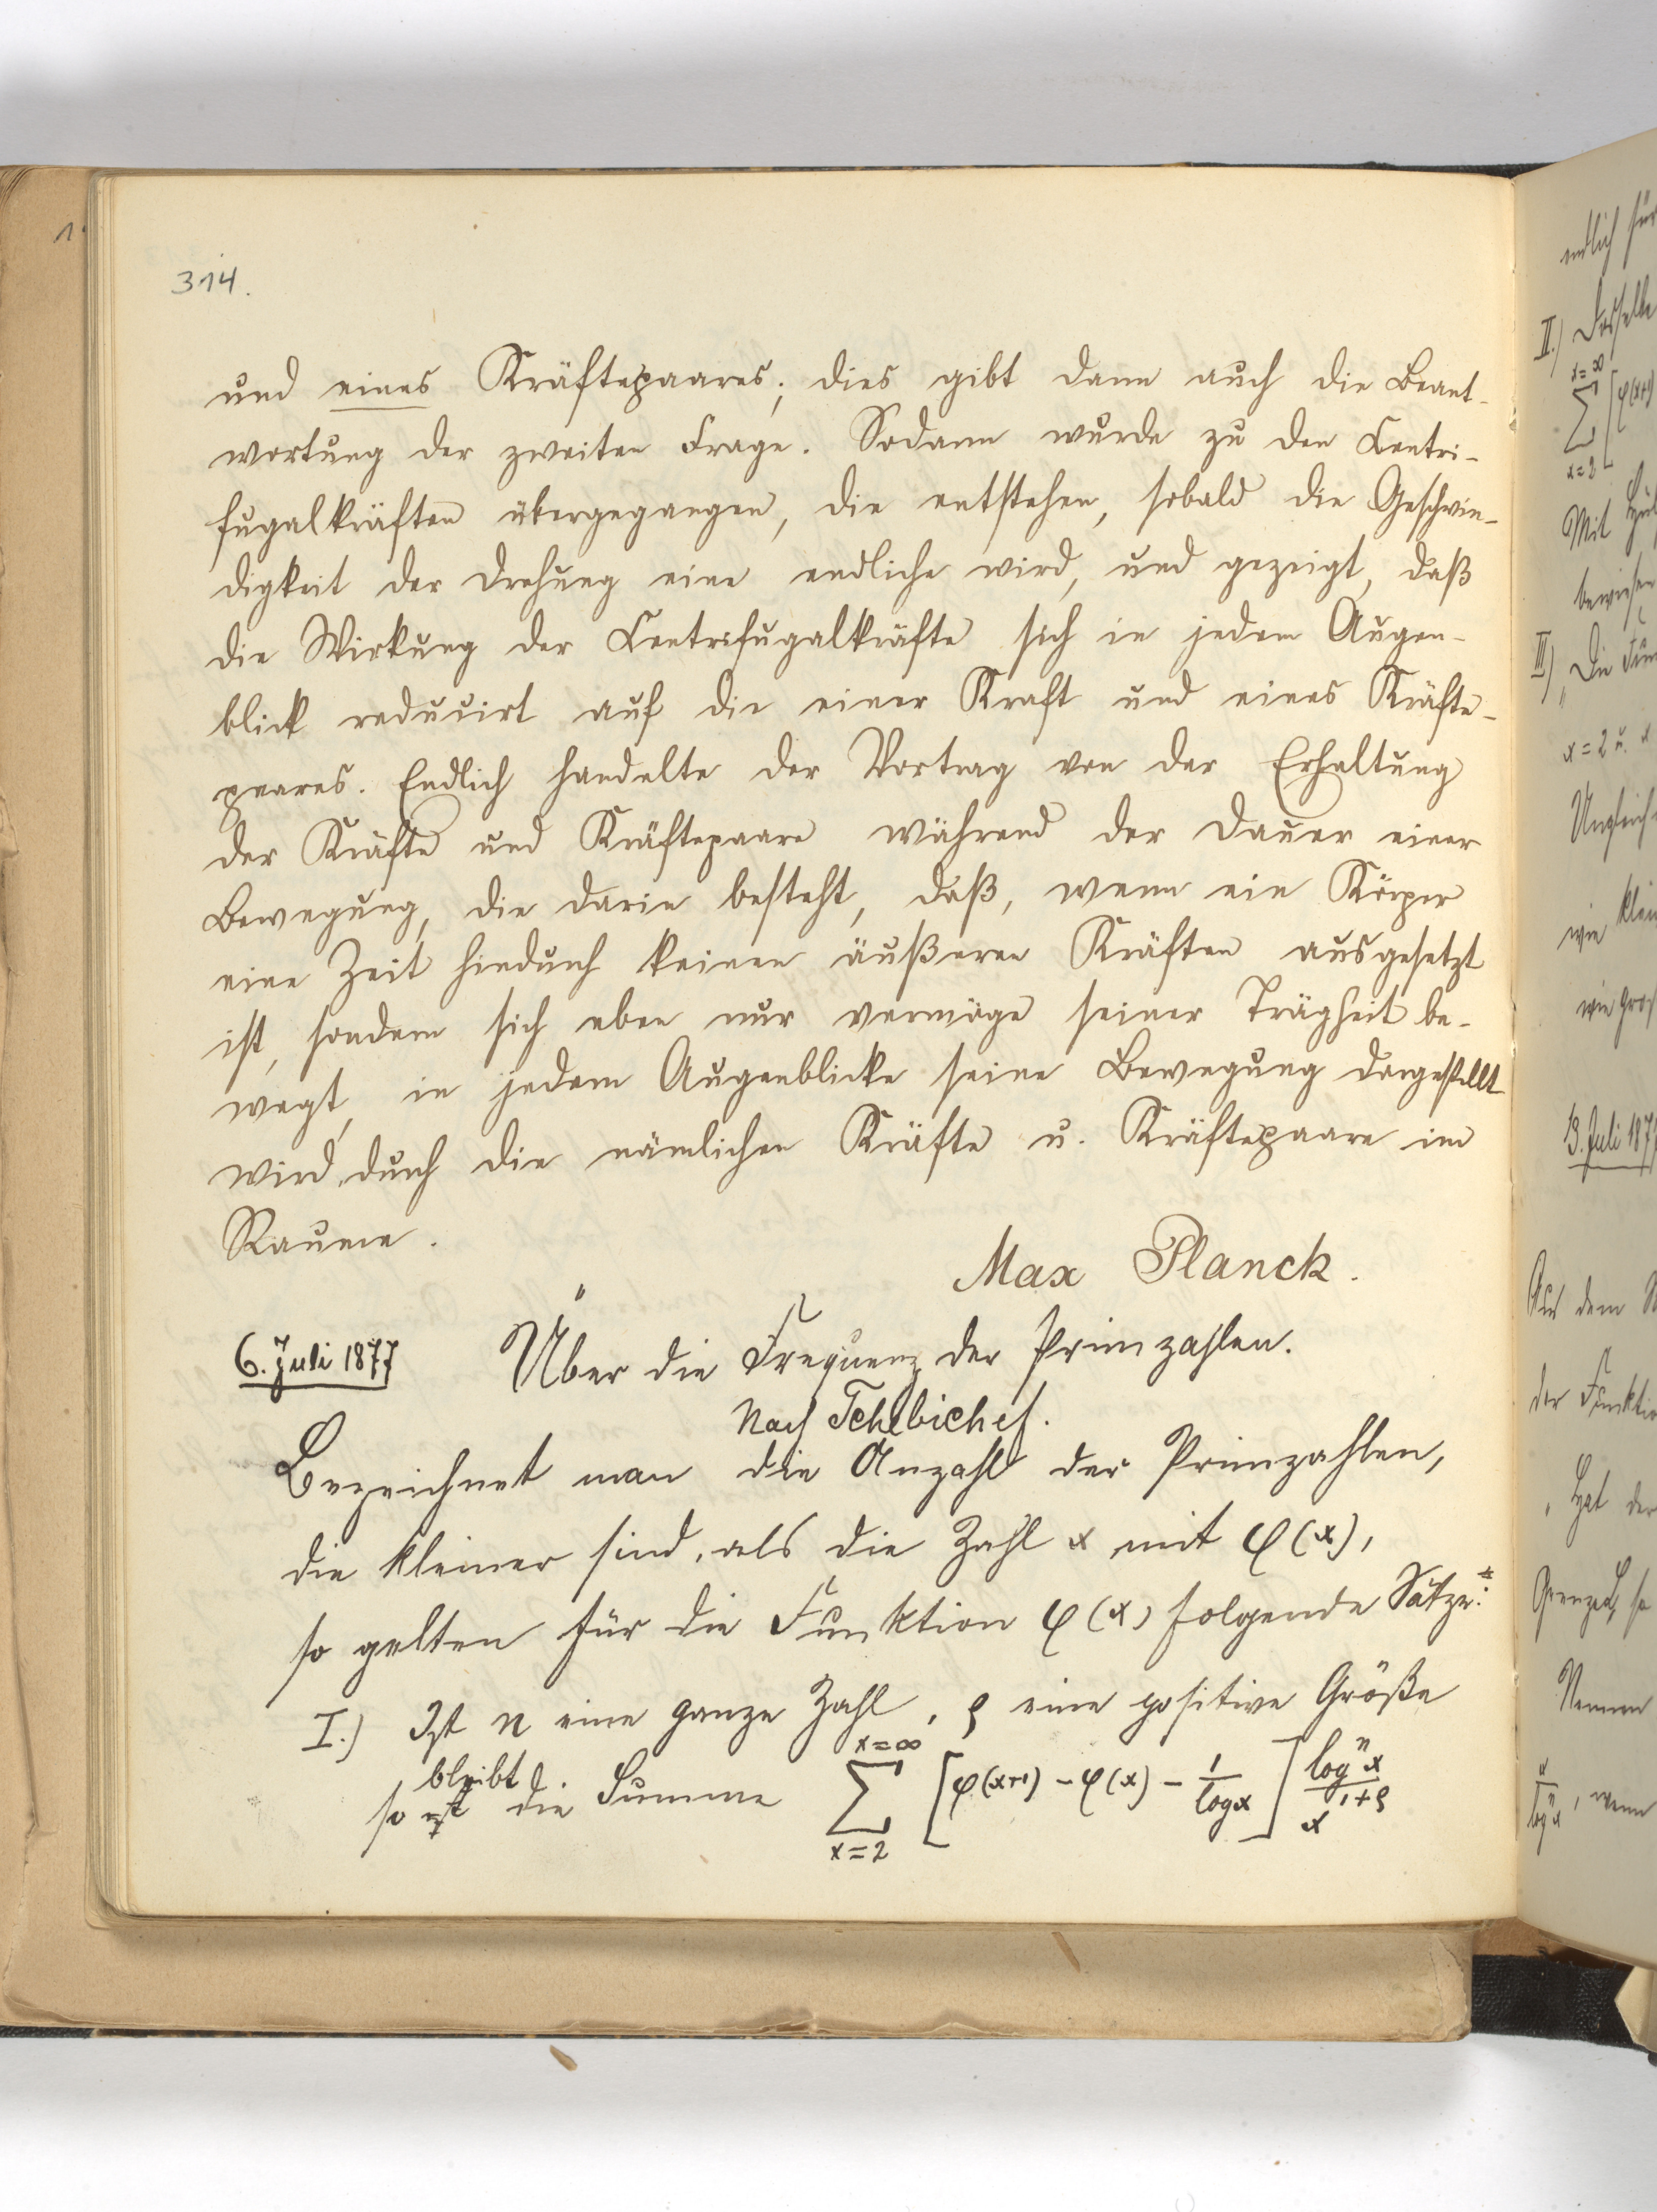 314.
und eines Kräftepaares; dies gibt dann auch die Beant-
wortung der zweiten Frage. Sodann wurde zu den Centri-
fugalkräften übergegangen, die entstehen, sobald die Geschwin-
digkeit der Drehung eine endliche wird, und gezeigt, daß
die Wirkung der Centrifugalkräfte sich in jedem Augen-
blick reducirt auf die einer Kraft und eines Kräfte-
paares. Endlich handelte der Vortrag von der Erhaltung
der Kräfte und Kräftepaare während der Dauer einer
Bewegung, die darin besteht, daß, wenn ein Körper
eine Zeit hindurch keinen äußeren Kräften ausgesetzt
ist, sondern sich eben nur vermöge seiner Trägheit be-
wegt, in jedem Augenblicke seine Bewegung dargestellt
wird durch die nämlichen Kräfte u. Kräftepaare im
Raume.
Max Planck.
6. Juli 1877 Über die Frequenz der Primzahlen.
Nach Tchebichef.
Bezeichnet man die Anzahl der Primzahlen,
die kleiner sind, als die Zahl x mit φ(x),
so gelten für die Funktion φ(x) folgende Sätze:*
I.) Ist n eine ganze Zahl, ρ eine positive Größe
so bleibt die Summe ∑_{x=2}^{x=∞} [φ(x+1) - φ(x) - 1/log x] log^n x / x^{1+ρ}
endlich für
II.) Dasselbe
x=∞
∑ [φ(x+1)
x=2
Mit
bewiesen
III.) „Die
x=2 u. x
wie
wie
13. Juli 1877
Aus dem
der Funktion
der
Grenze, so
Nennen
x/log^n x, wenn